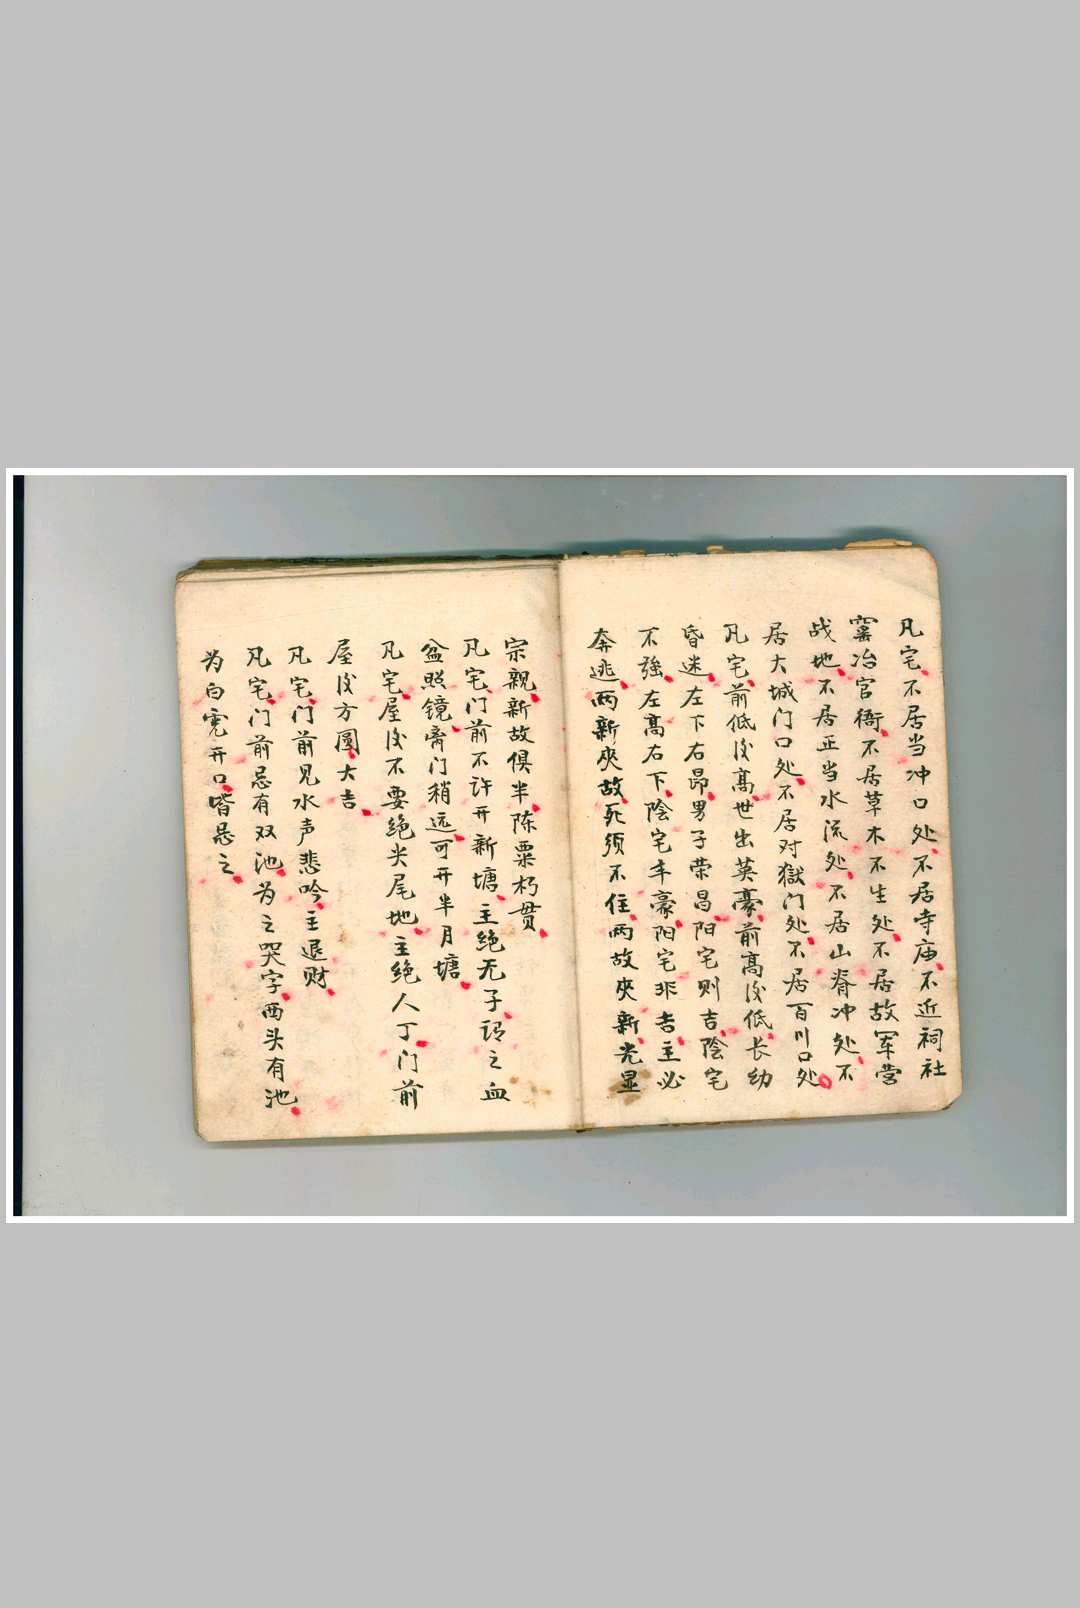 凡宅不居当冲口处不居寺庙不近祠社
窰冶官衙不居草木不生处不居故军营
战地不居正当水流处不居山脊冲处不
居大城门口处不居对獄门处不居百川口处
凡宅前低後高世出英豪前高後低长幼
昏迷左下右昂男子荣昌阳宅则吉陰宅
不強左高右下陰宅丰豪阳宅非吉主必
奔逃两新夾故死须不住两故夾新光显
宗親新故俱半陈粟朽贯
凡宅门前不许开新塘主绝无子谓之血
盆照镜門稍远可开半月塘
凡宅屋後不要绝尖尾地主绝人丁门前
屋後方圓大吉
凡宅门前见水声悲吟主退财
凡宅门前忌有双池为之哭字西头有池
为白虎开口皆忌之